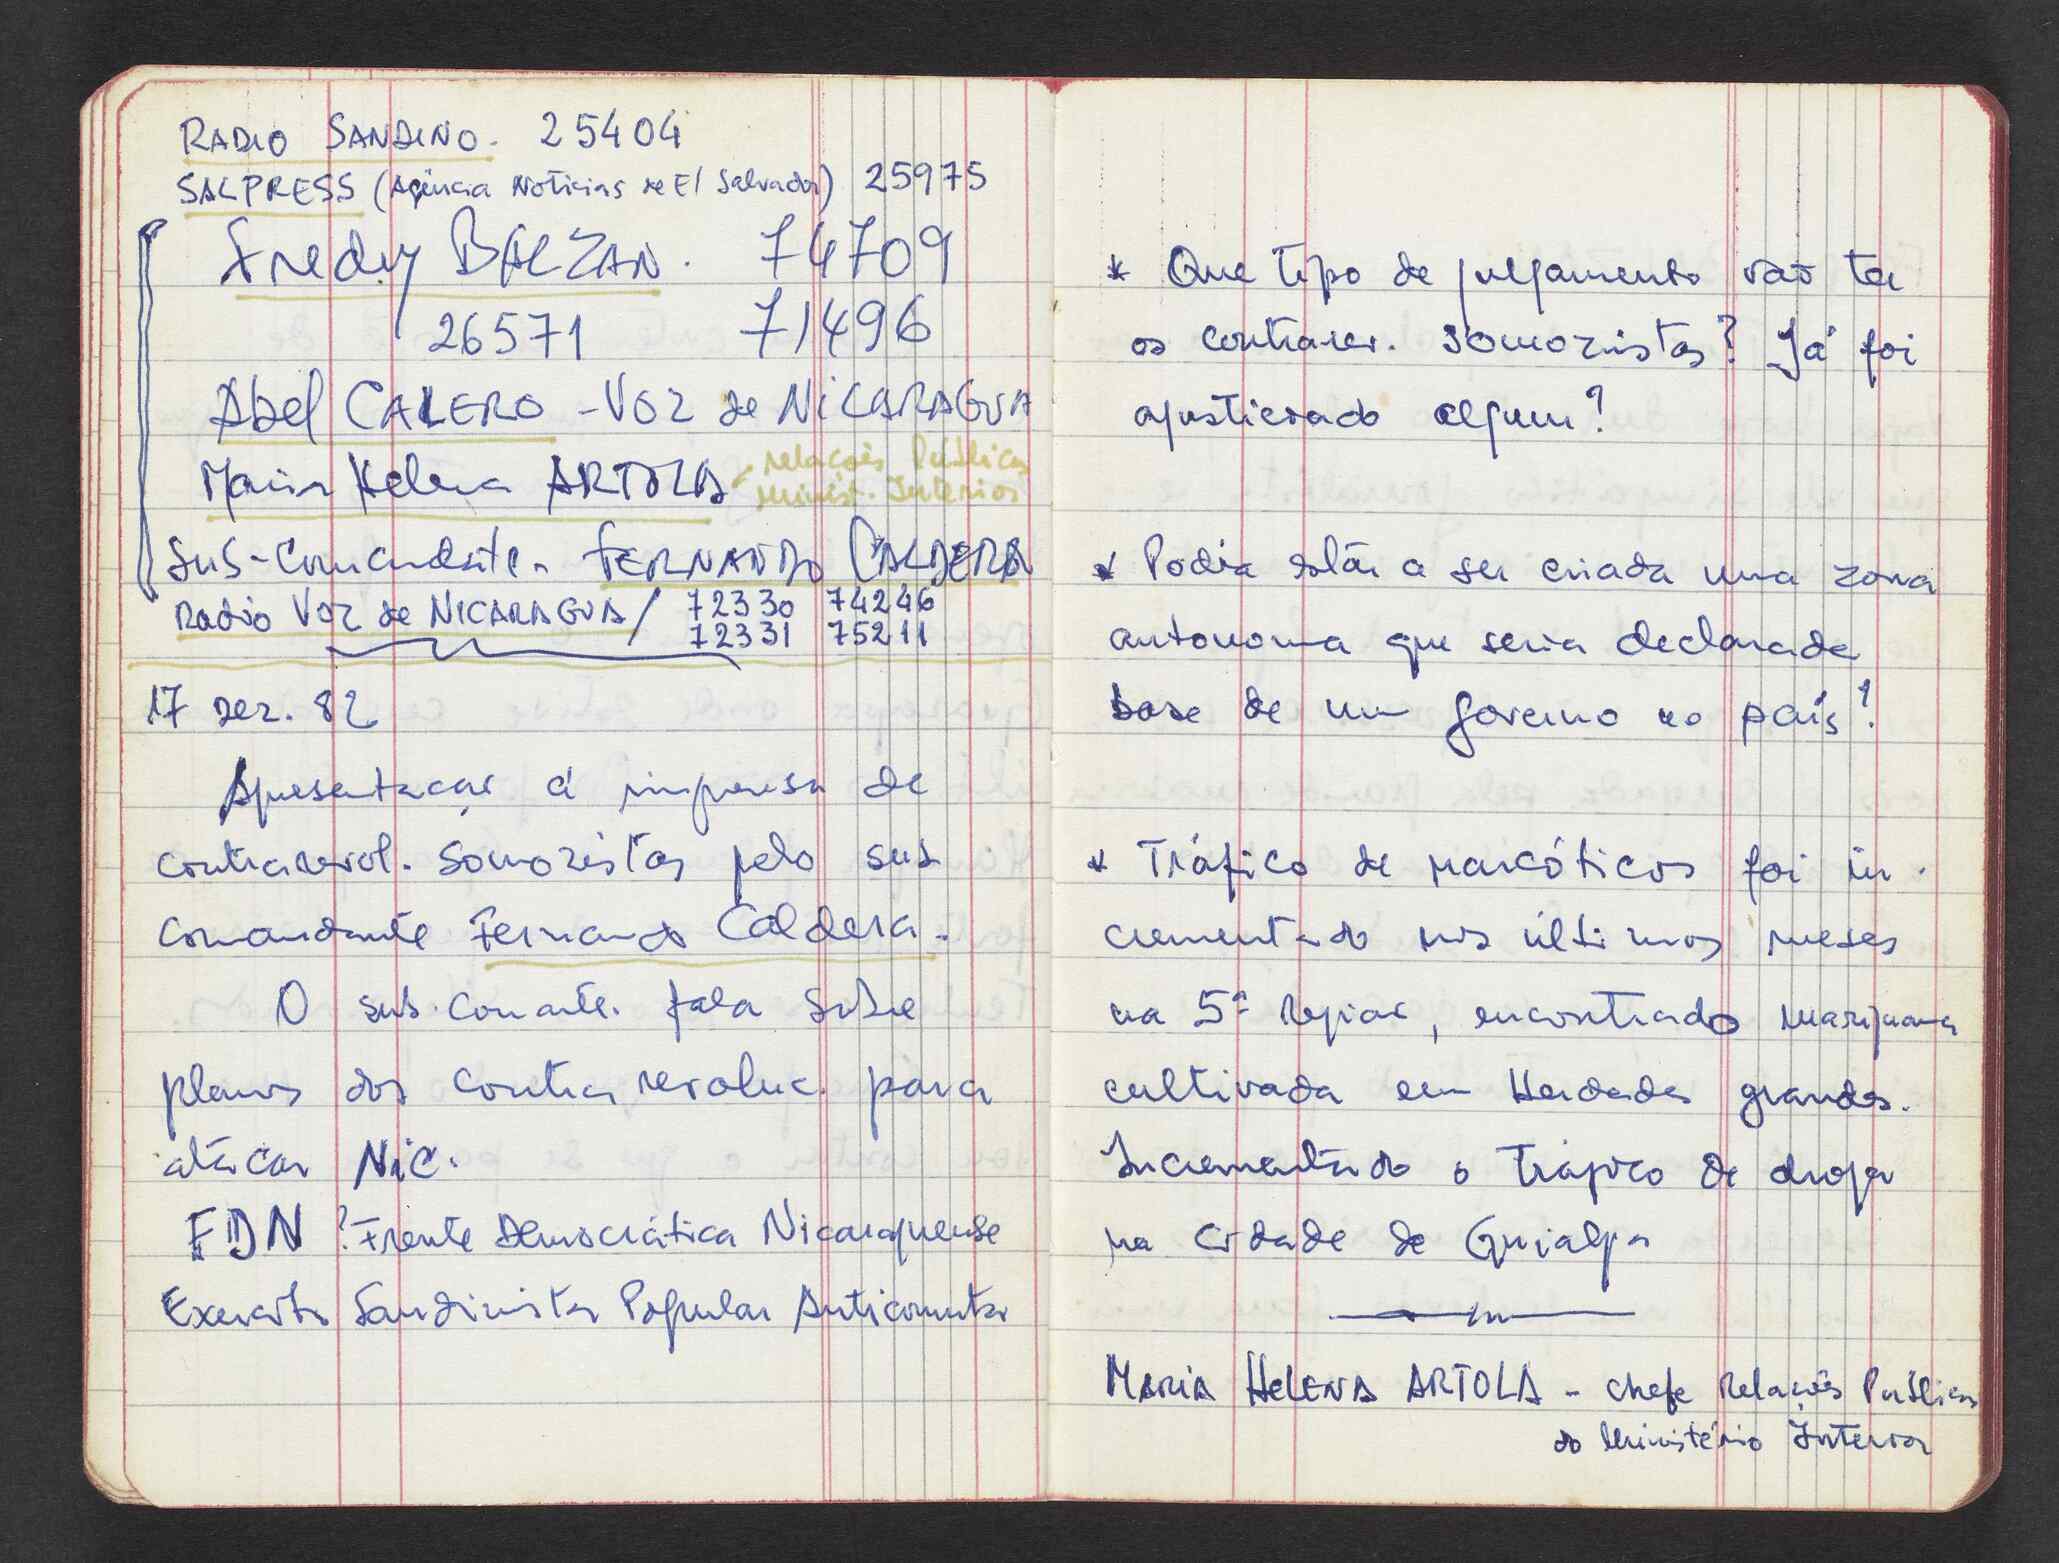 RADIO SANDINO. 25404
SALPRESS (Agência Noticias de El Salvador) 25975
Fredy BALZAN. 74709
26571 71496
Abel CALERO - VOZ de NICARAGUA
Maria Helena ARTOLA relações Públicas
Minist. Interior
Sub-Comandante. FERNANDO CALDERA
Radio VOZ de NICARAGUA / 72330 74246
72331 75211
17 DEZ. 82
Apresentação á imprensa de
contrarevol. somozistas pelo sub
comandante Fernando Caldera.
O sub. Comante. fala sobre
planos dos contra revoluc. para
atacar NIC.
FDN ? Frente Democrática Nicaraguense
Exercito Sandinista Popular
* Que tipo de julgamento vão ter
os contrarev. somozistas? Já foi
ajusticiado algum?
* Podia estar a ser criada uma zona
autonoma que seria declarada
base de um governo no país?
* Tráfico de narcóticos foi in-
crementado nos últimos meses
na 5ª região, encontrado marijuana
cultivada em Herdades grandes.
Incrementado o tráfico de droga
na cidade de Guialpa
MARIA HELENA ARTOLA - chefe Relações Publicas
do Ministério Interior